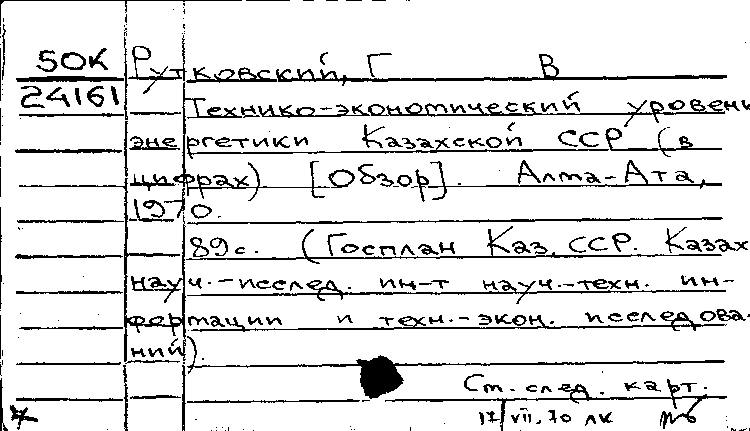 50К Рутковский, Г В
24161
Технико-экономический уровень
энергетики Казахской ССР (в
цифрах). [Обзор]. Алма-Ата,
1970.
89с. (Госплан Каз. ССР. Казах
науч.-исслед. ин-т науч.-техн. ин-
формации и техн.-экон. исследова-
ний).
См. след. карт.
17/VII.70 лк